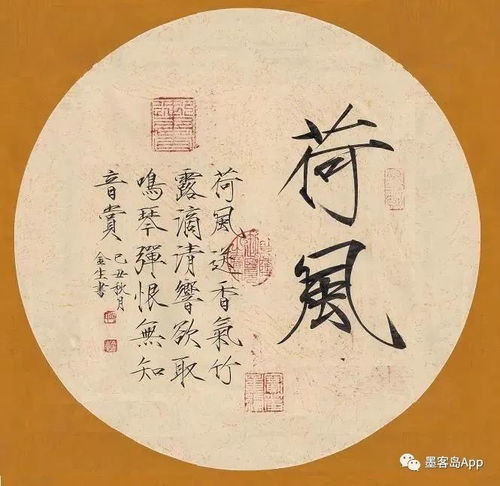 荷風
荷風送香氣竹
露滴清響欲取
鳴琴彈恨無知
音賞
己丑秋月
金生書
墨客岛App